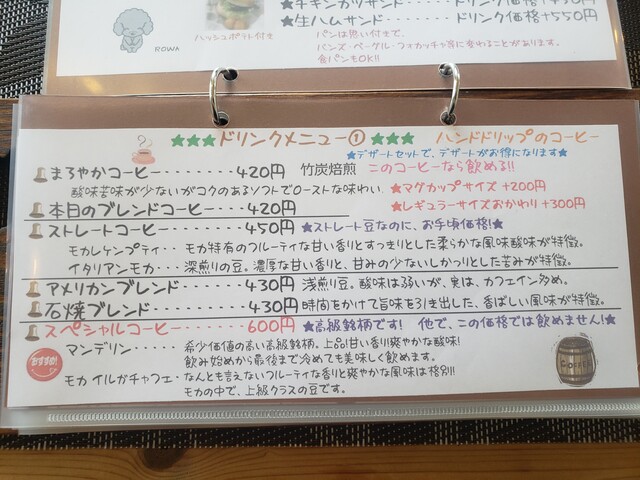 ★チキンカツサンド・・・・・ドリンク価格+450円
★生ハムサンド・・・・・・ドリンク価格+550円
ハッシュポテト付き
パンは思い付きで、
バンズ・ベーグル・フォカッチャ等に変わることがあります。
食パンもOK!!
ROWA
★★★ドリンクメニュー①★★★ ハンドドリップのコーヒー
★デザートセットで、デザートがお得になります★
まろやかコーヒー・・・・・・・420円 竹炭焙煎 このコーヒーなら飲める!!
酸味苦味が少ないがコクのあるソフトでローストな味わい
★マグカップサイズ +200円
本日のブレンドコーヒー・・・420円
★レギュラーサイズおかわり+300円
ストレートコーヒー・・・・・・450円 ★ストレート豆なのに、お手頃価格!★
モカレケンプティ・・・モカ特有のフルーティな甘い香りとすっきりとした柔らかな風味酸味が特徴。
イタリアンモカ・・・深煎りの豆。濃厚な甘い香りと、甘みの少ないしかっりとした苦みが特徴。
アメリカンブレンド・・・・・・430円 浅煎り豆。酸味は弱いが、実は、カフェイン多め。
石焼ブレンド・・・・・・・・・430円 時間をかけて旨味を引き出した、香ばしい風味が特徴。
スペシャルコーヒー・・・・・・600円 ★高級銘柄です! 他で、この価格では飲めません!★
おすすめ!
マンデリン・・・・・希少価値の高い高級銘柄。上品!甘い香り!爽やかな酸味!
飲み始めから最後まで冷めても美味しく飲めます。
モカ イルガチャフェ・なんとも言えないフルーティな香りと爽やかな風味は格別!!
モカの中で、上級クラスの豆です。
COFFEE